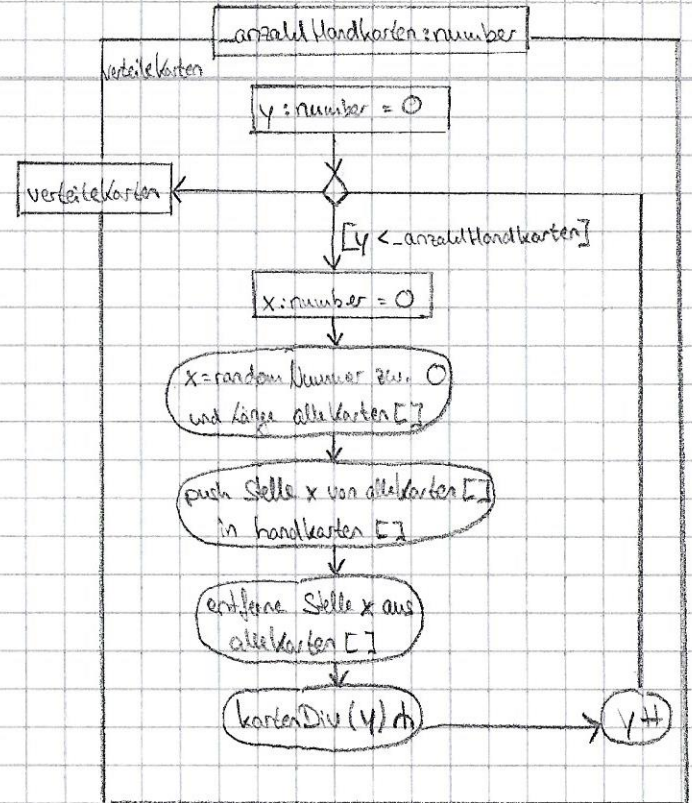 _anzahlHandkarten:number
verteileKarten
y:number = 0
verteileKarten
[y < _anzahlHandkarten]
x:number = 0
x=random Nummer zw. 0
und Länge alleKarten[]
push Stelle x von alleKarten[]
in handkarten[]
entferne Stelle x aus
alleKarten[]
kartenDiv(y)
y++